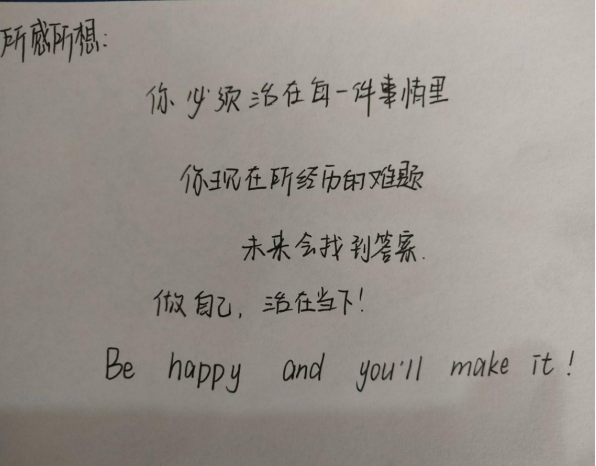 所感所想:
你必须活在每一件事情里
你现在所经历的难题
未来会找到答案.
做自己,活在当下!
Be happy and you'll make it!